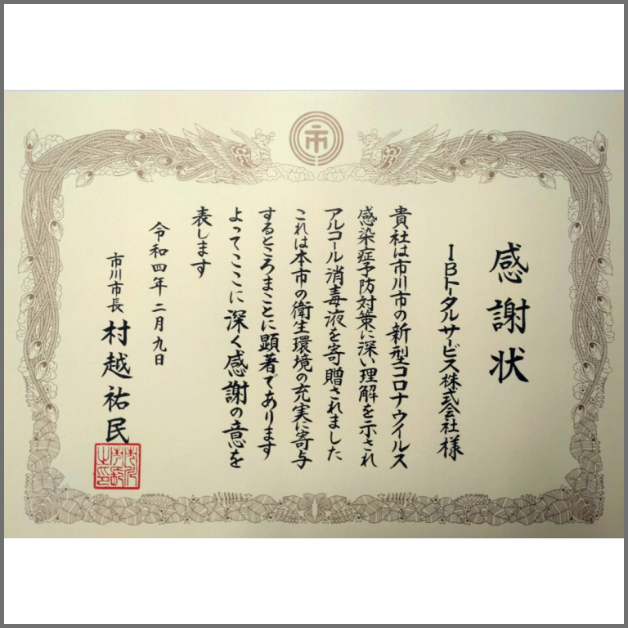 感謝状
IBトータルサービス株式会社様
貴社は市川市の新型コロナウイルス
感染症予防対策に深い理解を示され
アルコール消毒液を寄贈されました
これは本市の衛生環境の充実に寄与
するところまことに顕著であります
よってここに深く感謝の意を
表します
令和四年二月九日
市川市長 村越祐民